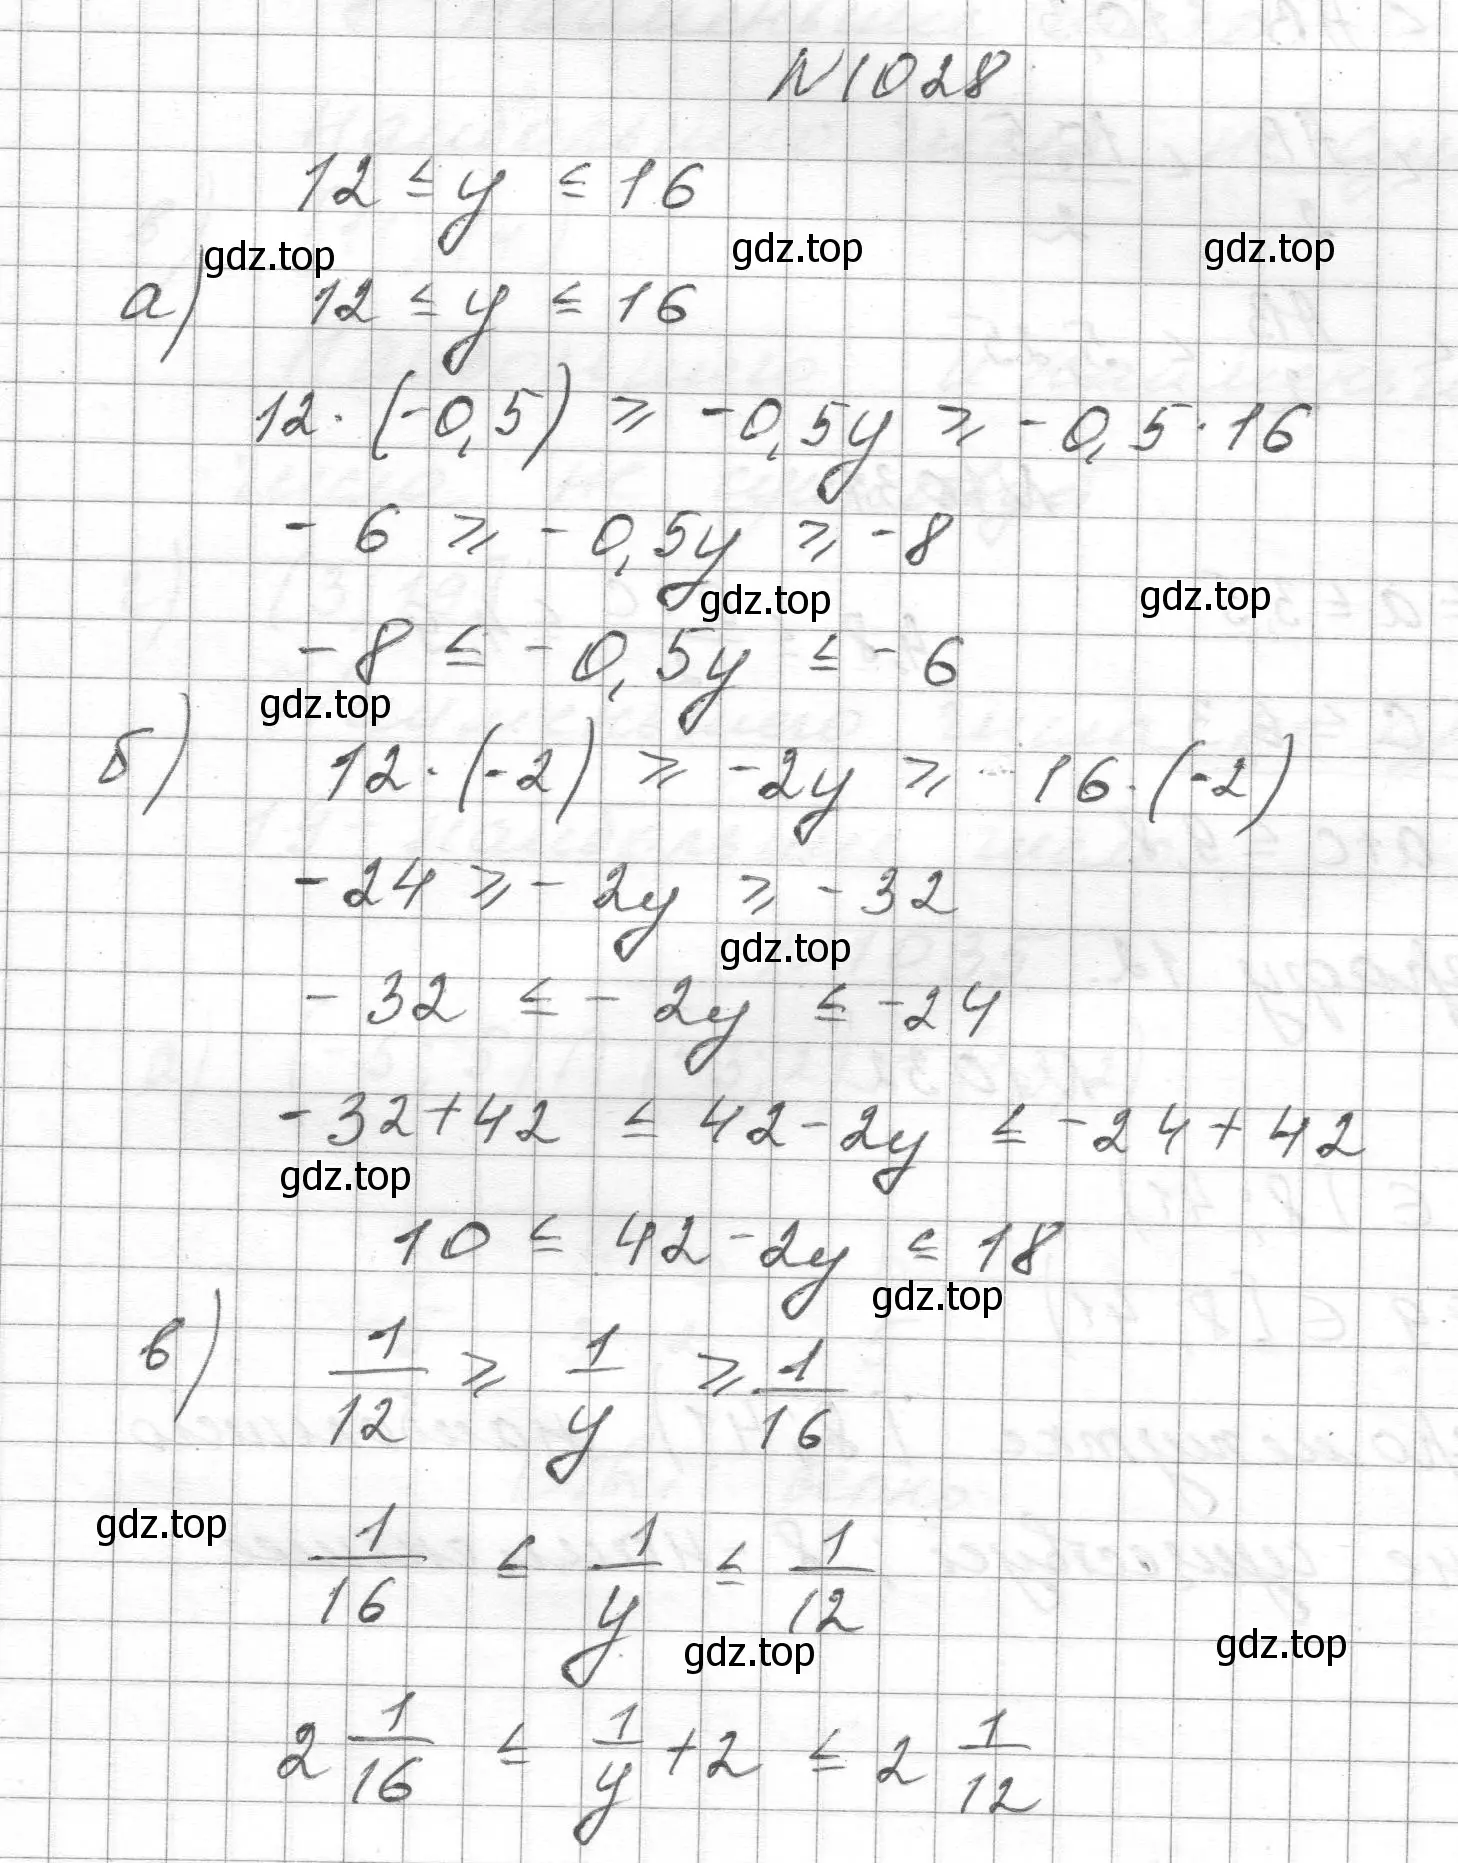 N1028
12 ≤ y ≤ 16
gdz.top gdz.top gdz.top
а) 12 ≤ y ≤ 16
12 · (-0,5) ⩾ -0,5y ⩾ -0,5 · 16
-6 ⩾ -0,5y ⩾ -8
gdz.top gdz.top
-8 ≤ -0,5y ≤ -6
gdz.top
б) 12 · (-2) ⩾ -2y ⩾ 16 · (-2)
-24 ⩾ -2y ⩾ -32
gdz.top
-32 ≤ -2y ≤ -24
-32+42 ≤ 42-2y ≤ -24+42
gdz.top
10 ≤ 42-2y ≤ 18
gdz.top
в) 1/12 ⩾ 1/y ⩾ 1/16
gdz.top
1/16 ≤ 1/y ≤ 1/12
gdz.top gdz.top
2 1/16 ≤ 1/y + 2 ≤ 2 1/12